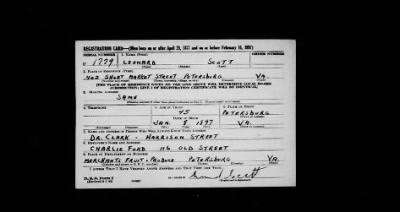 REGISTRATION CARD—(Men born on or after April 28, 1877 and on or before February 16, 1897)
SERIAL NUMBER 1. NAME (Print) ORDER NUMBER
U 1779 LEONARD SCOTT
2. PLACE OF RESIDENCE (Print)
SHORT MARKET STREET PETERSBURG VA.
[THE PLACE OF RESIDENCE GIVEN ON THE LINE ABOVE WILL DETERMINE LOCAL BOARD
JURISDICTION; LINE 2 OF REGISTRATION CERTIFICATE WILL BE IDENTICAL]
3. MAILING ADDRESS
SAME
4. TELEPHONE 5. AGE IN YEARS 6. PLACE OF BIRTH
45 PETERSBURG
DATE OF BIRTH
JAN 8 1897 VA.
7. NAME AND ADDRESS OF PERSON WHO WILL ALWAYS KNOW YOUR ADDRESS
DR. CLARK - HARRISON STREET
8. EMPLOYER'S NAME AND ADDRESS
CHARLIE FORD 116 OLD STREET
9. PLACE OF EMPLOYMENT OR BUSINESS
MERCHANTS FRUIT + PRODUCE PETERSBURG VA.
I AFFIRM THAT I HAVE VERIFIED ABOVE ANSWERS AND THAT THEY ARE TRUE.